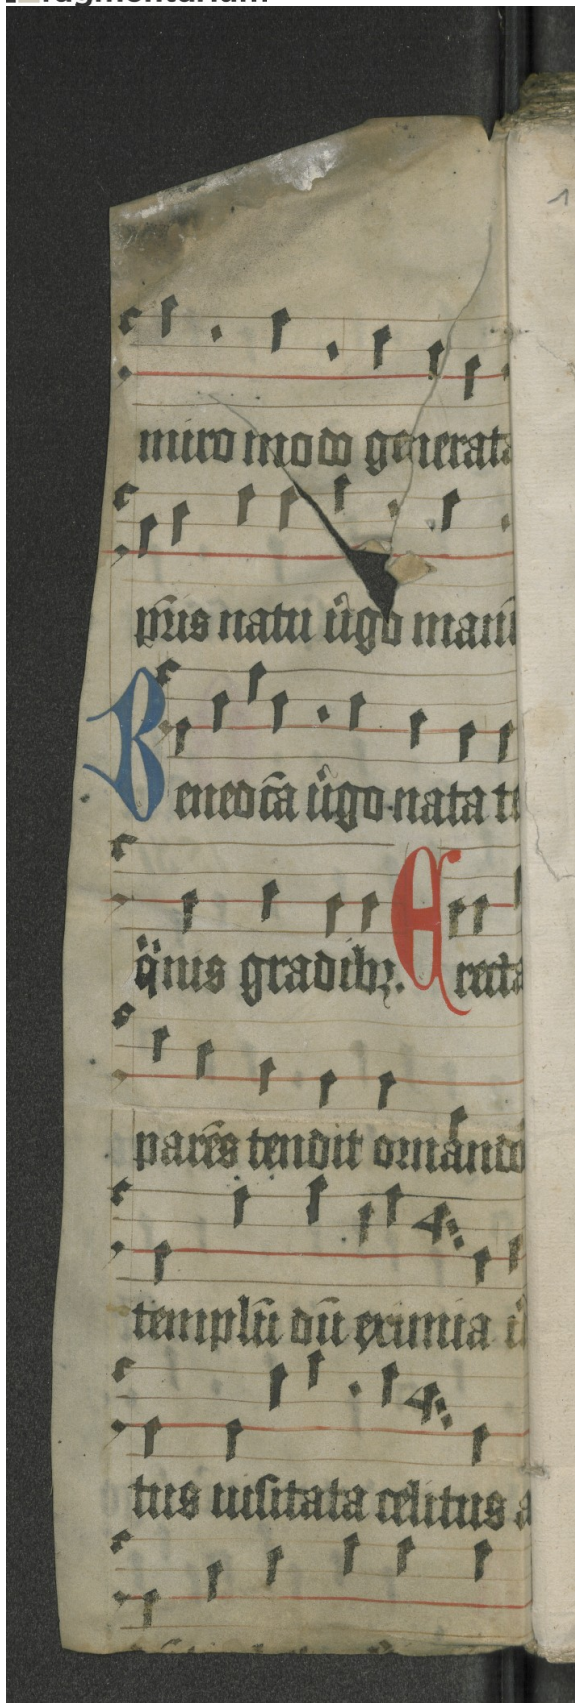 miro modo generata
pͥus natū uͥgo man
Benedc̄a uͥgo nata t
qͥnis gradibꝫ. Erecta
parēs tendit ornando
templū dū eximia
tus uisitata celitus a